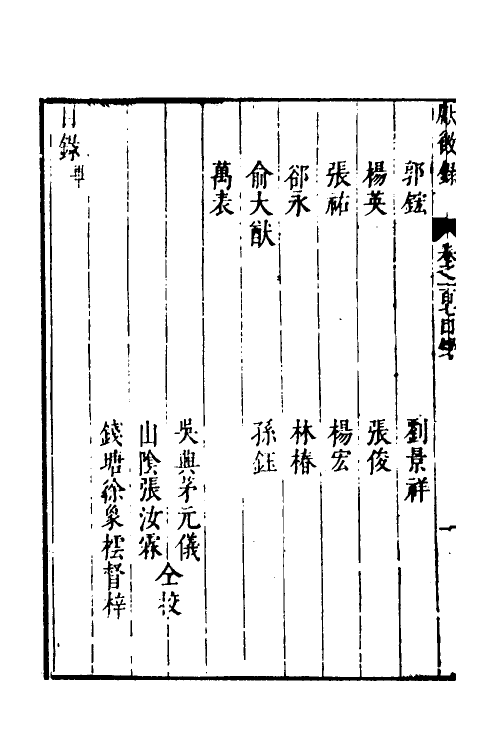 獻徵錄　卷之一百七目錄　一
郭鋐　劉景祥
楊英　張俊
張祐　楊宏
郤永　林椿
俞大猷　孫鈺
萬表
吳興茅元儀
山陰張汝霖　仝校
錢塘徐象橒督梓
目錄畢